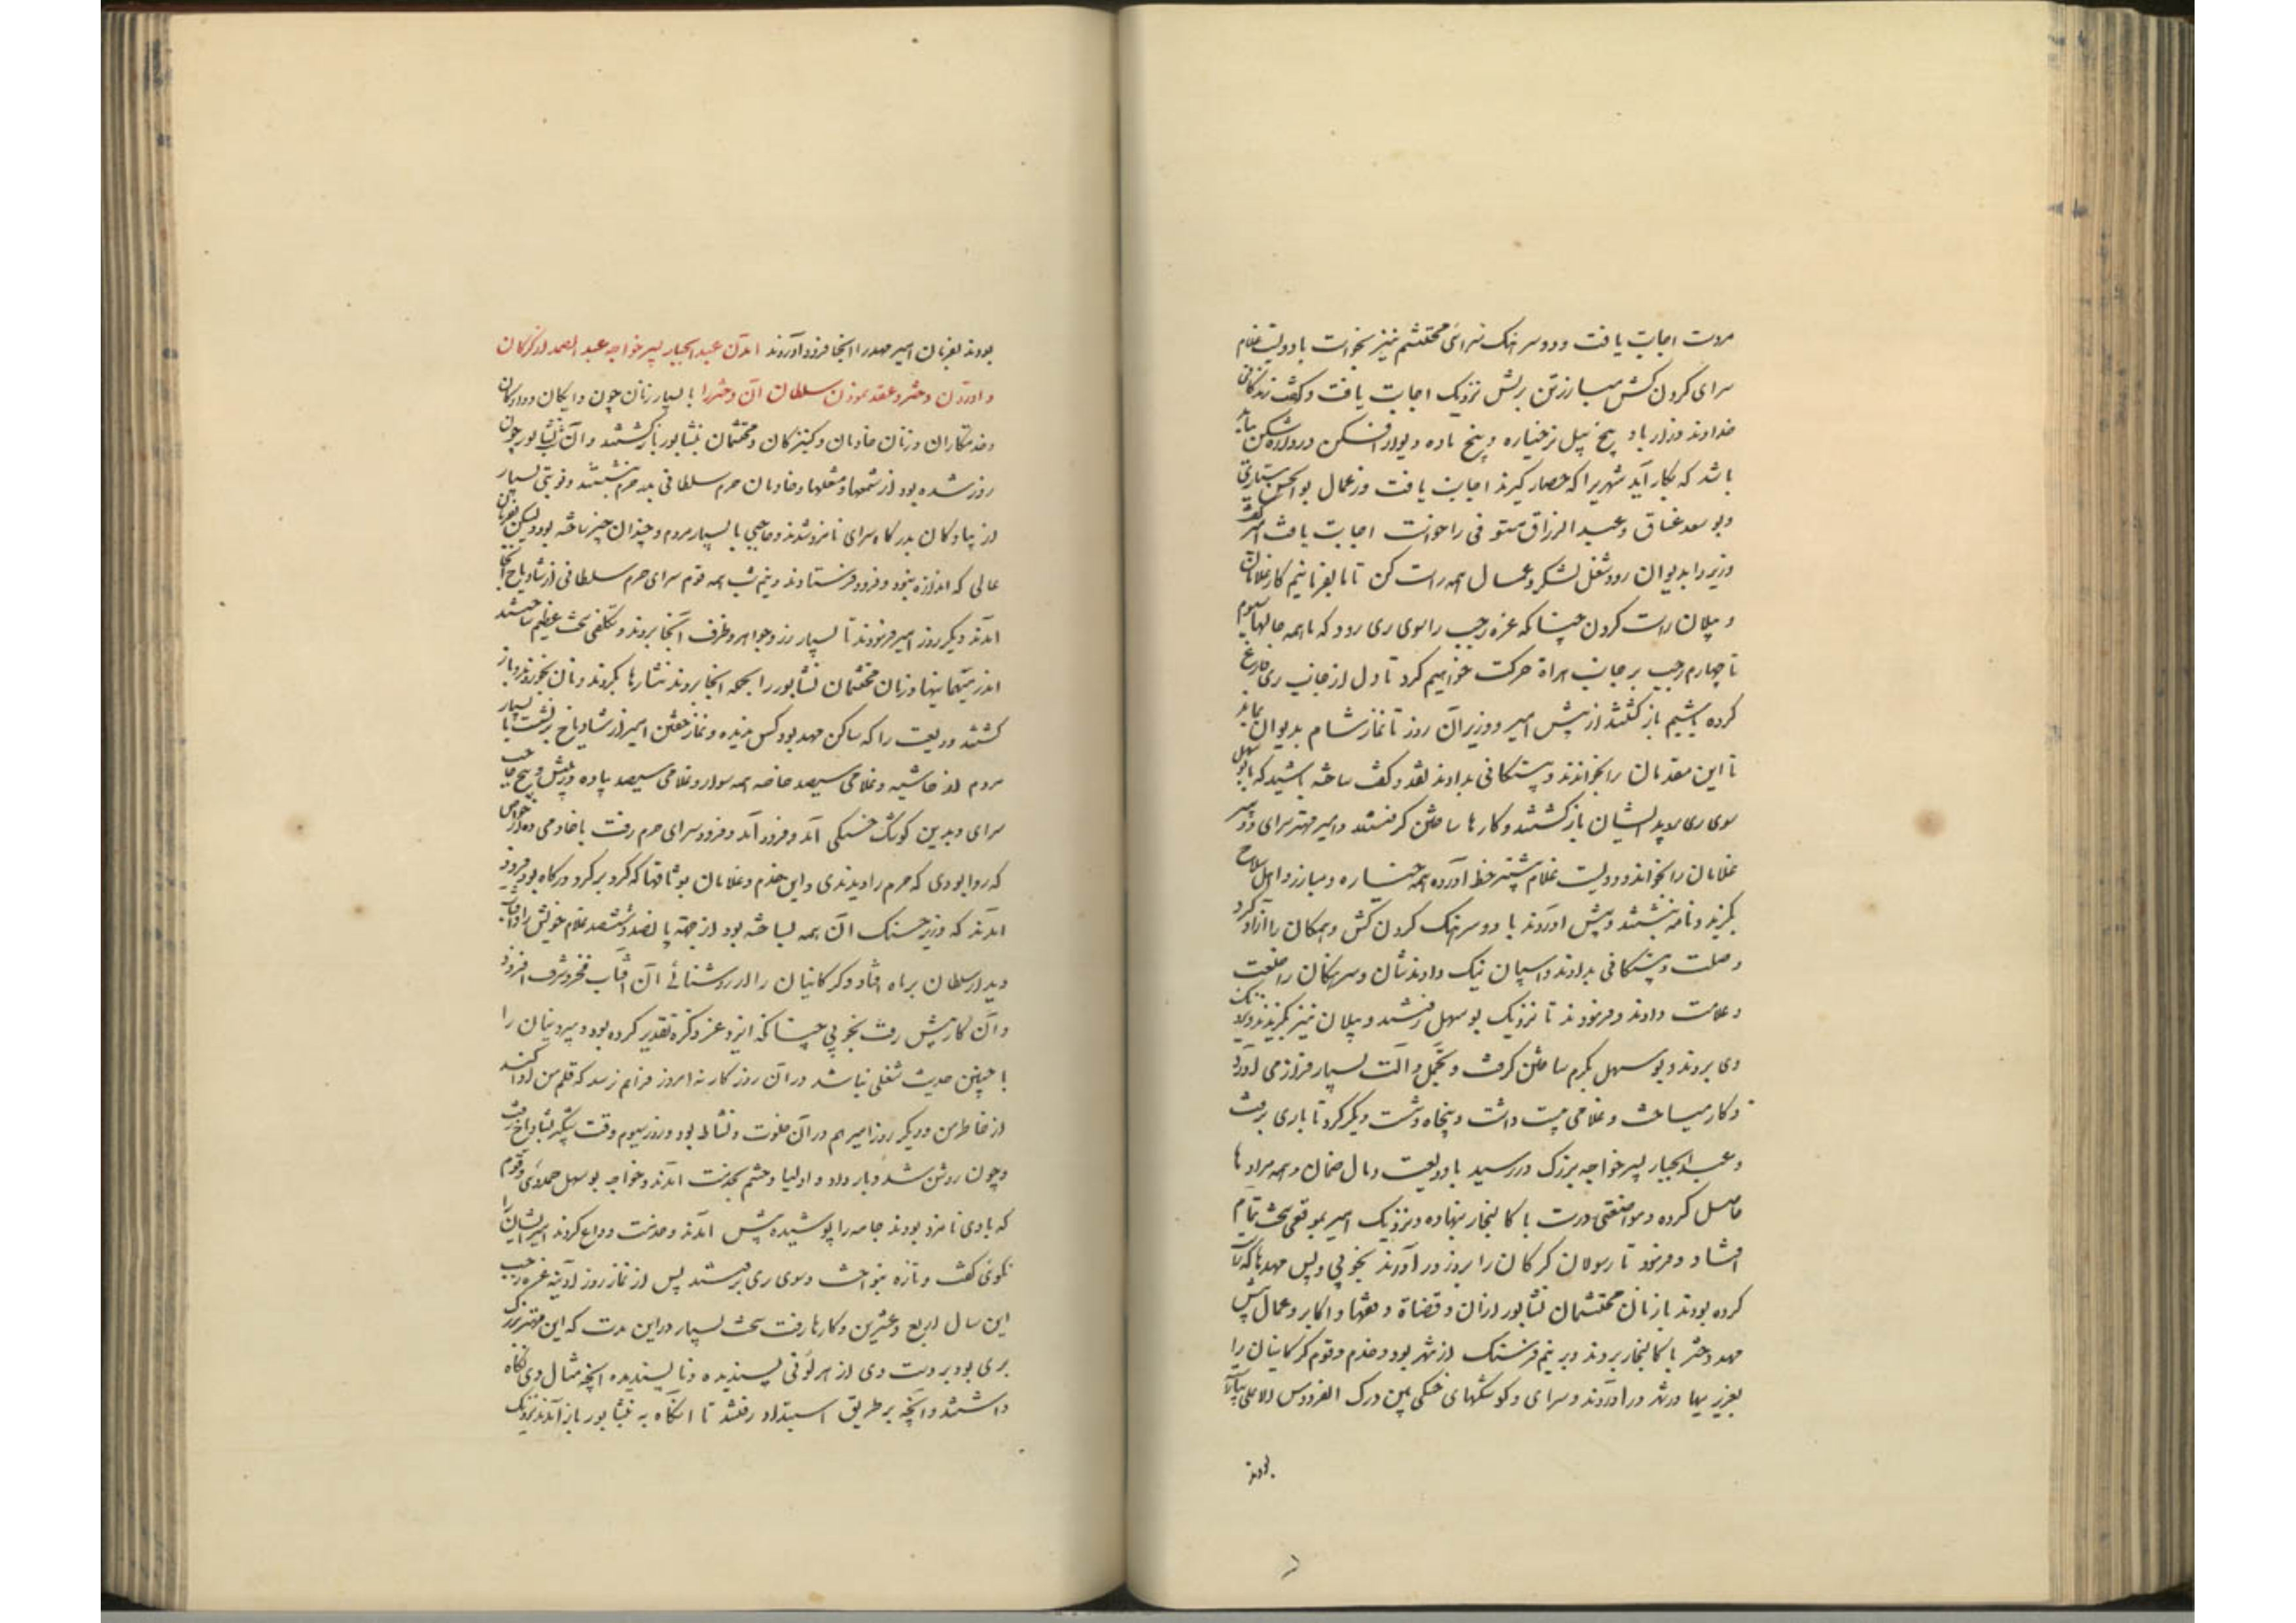 مروت اجابت یافت و دو سرهنک سرای محتشم نیز بخواست با دویست غلام
سرای کردن کش مبارزتن بریش نزدیک اجابت یافت و کفت زندکانی
خداوند دراز باد پنج پیل نر خیاره و پنج ماده دیوار افکن دروازه شکن بباید
باشد که بکار آید شهریرا که حصار کیرند اجابت یافت و از عمال بوالحسن سیاری
و بو سعد غسان و عبد الرزاق مستوفی را خواست اجابت یافت امیر کفت
وزیر را بدیوان رو و شغل لشکر و عمال همه راست کن تا ما بفرمائیم کار غلامان
و پیلان راست کردن چنانکه غره رجب را سوی ری رود که ما همه حالها سیوم
تا چهارم رجب بر جانب هراة حرکت خواهیم کرد تا دل از جانب ری فارغ
کرده باشیم باز کشتند از پیش امیر و وزیر آن روز تا نماز شام بدیوان بماند
تا این مقدمان را بخواندند و بیستکانی بدادند نقد و کفت ساخته باشید که با بوسهل
سوی ری روید ایشان بازکشتند و کارها ساختن کرفتند و امیر مهتر سرای و دبیر
غلامان را بخواند و دویست غلام بیشتر خط آورده همه خیاره و مبارز و اهل سلاح
بکزید و نامه نبشتند و پیش آوردند با دو سرهنک کردن کش و همکان را آزاد کرد
و صلت و بیستکانی بدادند و اسپان نیک دادندشان و سرهنکان را خلعت
و علامت دادند و فرمودند تا نزدیک بو سهل رفتند و پیلان نیز بکزیدند و نزدیک
وی بردند و بو سهل بکرم ساختن کرفت و تجمل و آلت بسیار فراز می آورد
و کار میساخت و غلامی بیست داشت و پنجاه و شست دیکر کرد تا باری برفت
و عبد الجبار پسر خواجه بزرک در رسید با ودیعت و مال ضمان و همه مرادها
حاصل کرده و مواضعتی درست با کالنجار بنهاده و نزدیک امیر بموقعی سخت تمام
افتاد و فرمود تا رسولان کرکان را بروز در آوردند بخوبی و پس مهدها که راست
کرده بودند با زنان محتشمان نشابور از آن و قضاة و فقها و اکابر و عمال پیش
مهد دختر با کالنجار بردند و بر نیم فرسنک از شهر بود و خدم و قوم کرکانیان را
بعزیزیها در شهر در آوردند و سرای و کوشکهای حسنکی چون درک الفردوس الاعلی بیاراسته
بودند
بودند بفرمان امیر مهد را آنجا فرود آوردند آمدن عبد الجبار پسر خواجه عبد الصمد از کرکان
و آوردن دختر و عقد نمودن سلطان آن دختر را با بسیار زنان چون دایکان و ددکان
و خدمتکاران و زنان خادمان و کنیزکان و محتشمان نشابور بازکشتند و آن شب نشابور چون
روز شده بود از شمعها و مشعلها و خادمان حرم سلطانی بدر حرم بنشستند و نوبتی بسیار
از پیادکان بدرکاه سرای نامزد شدند و حاجبی با بسیار مردم و چندان چیز ساخته بود و لیکن بفرمان
عالی که اندازه نبود و فرود فرستادند و نیم شب همه قوم سرای حرم سلطانی از شادیاخ آنجا
آمدند دیکر روز امیر فرمودند تا بسیار زر و جواهر و ظرف آنجا بردند و تکلفی سخت عظیم ساختند
اندر میهمانیها و زنان محتشمان نشابور را بجمله آنجا بردند نثارها بکردند و نان بخوردند و باز
کشتند و ودیعت را که ساکن مهد بود کس ندیده و نماز خفتن امیر از شادیاخ برنشست با بسیار
مردم از حاشیه و غلامی سیصد خاصه همه سوار و غلامی سیصد پیاده در پیش و پنج حاجب
سرای و بدین کوشک حسنکی آمد و فرود آمد و در سرای حرم رفت با خادمی ده از خواص
که روا بودی که حرم را دیدندی و این خدم و غلامان بوثاقها که کرد بر کرد درکاه بود فرود
آمدند که وزیر حسنک آن همه بساخته بود از جهة پانصد و ششصد غلام خویش را و آفتاب
دیدار سلطان بر ماه افتاد و کرکانیان را از روشنائی آن آفتاب فخر و شرف افزود
و آن کار پیش رفت بخوبی چنانکه ایزد عز ذکره تقدیر کرده بود و بیرونیان را
با چنین حدیث شغلی نباشد در آن روزکار نه امروز مرا هم نرسد که قلم من ادا کند
از خاطر من و دیکر روز امیر هم در آن خلوت و نشاط بود و روز سیوم وقت شبکیر بشادیاخ رفت
و چون روشن شد و بار داد و اولیا و حشم بخدمت آمدند و خواجه بو سهل حمدوی و قوم
که با وی نامزد بودند جامه راه پوشیده پیش آمدند و خدمت وداع کردند امیر ایشان را
نکوئی کفت و تازه بنواخت و سوی ری برفتند پس از نماز روز آدینه غره رجب
این سال اربع و عشرین و کارها رفت سخت بسیار در این مدت که این مهتر بزرک
بری بود بر دست وی از هر لونی پسندیده و نا پسندیده آنچه مثال وی نکاه
داشتند و آنچه بر طریق استبداد رفتند تا آنکاه به نشابور باز آمدند نزدیک